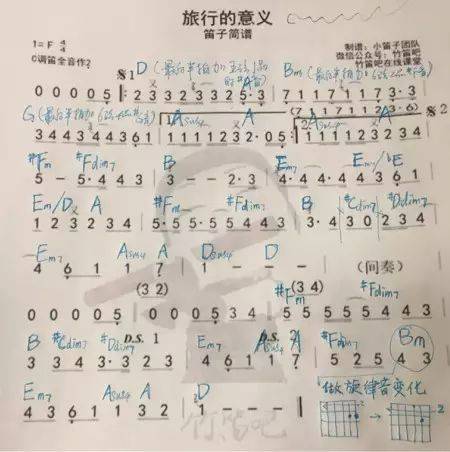 旅行的意义
笛子简谱
1=F 4/4
制谱：小笛子团队
微信公众号：竹笛吧
竹笛吧在线课堂
C调笛全音作2
𝄋1 D Bm
0 0 0 0 5 3 2 3 3 2 3 2 5· 3 7 1 1 7 1 1 7 3· 3
G Asus4 A Asus4 A 𝄋2
3 4 4 3 4 3 1 1 1 1 2 3 2· 0 5 1 1 1 1 2 3 2 3 4
#Fm #Fdim7 B Em7 Em7/bE
5 - 5· 4 4 3 3 - - 2· 3 4· 4 4· 4 4 3 6 1
Em/D A #Fm #Fdim7 B #Cdim7 #Ddim7
1 2 3 2 3 4 5· 5 5· 5 5 4 3 3· 4 3 0 2 3 4
Em7 Asus4 A Dsus4 D
4 6 1 1 7 1 - - - （间奏）
(3 2) #Fm (3 4) #Fdim7
0 0 0 0 5 0 0 0 0 5 5 5 5 5 4 4 3
B #Cdim7 #Ddim7 D.S. 1 Em7 Asus4 D.S. 2 A #Fdim7 Bm
3 3 4 3· 3 2 3 4 6 1 1 7 5 2 5 4 3
Em7 Asus4 A D 做旋律音变化
4 3 6 1 1 3 2 1 - - -
竹笛吧